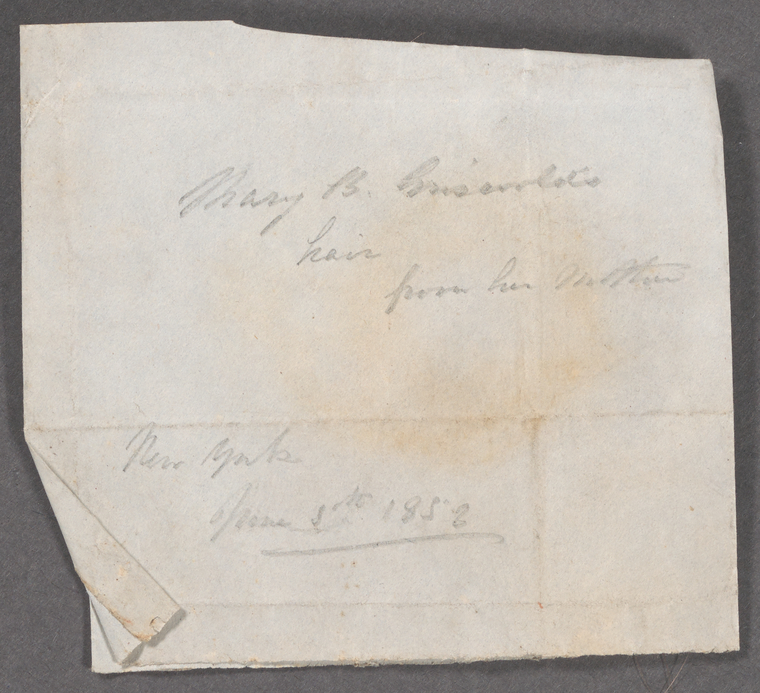 Mary B. Griswolds
hair
from her Mother
New York
June 5th 1852